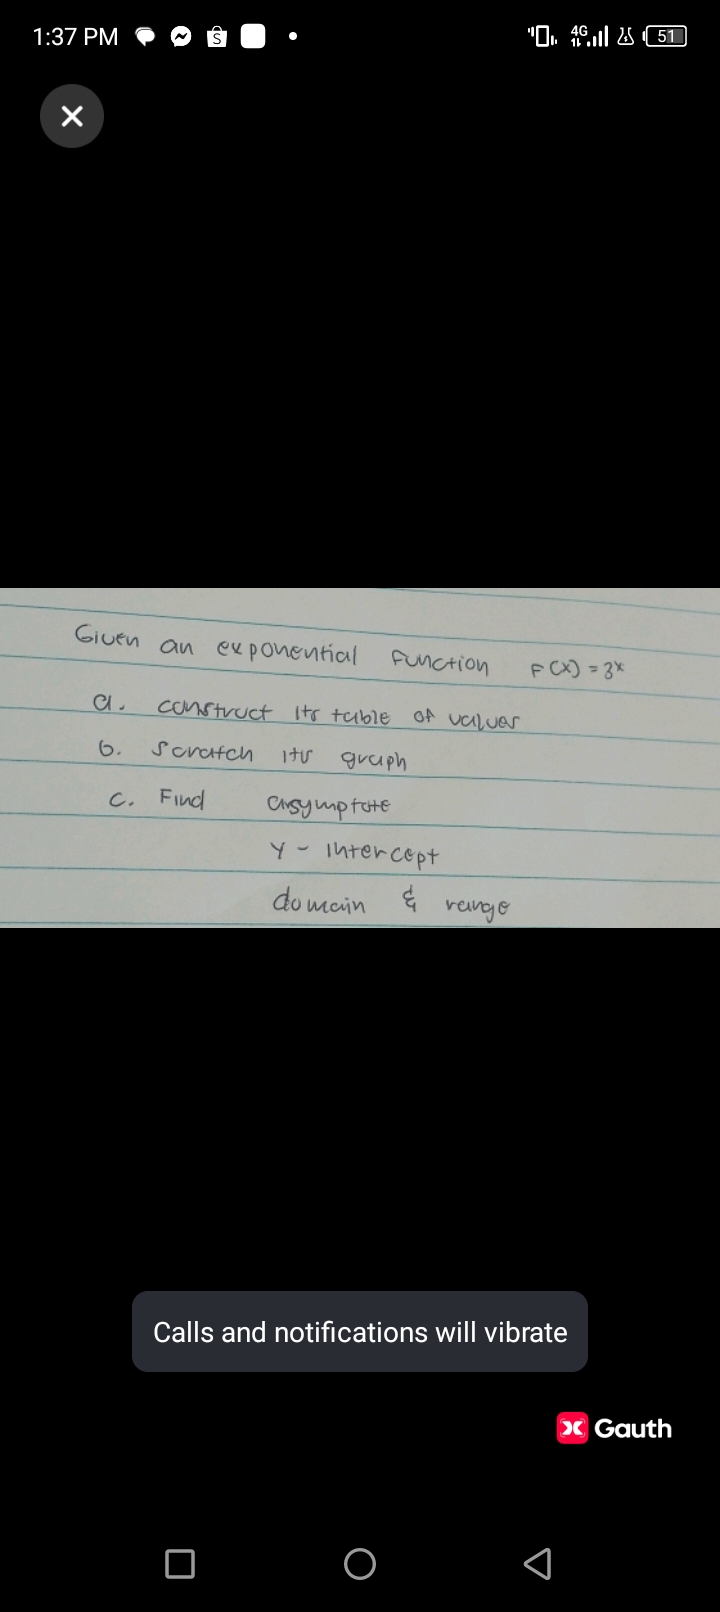 1:37 PM
4G 51
Given an exponential function F(x) = 3ˣ
a. construct its table of values
b. Scratch its graph
c. Find asymptote
y - intercept
domain & range
Calls and notifications will vibrate
Gauth